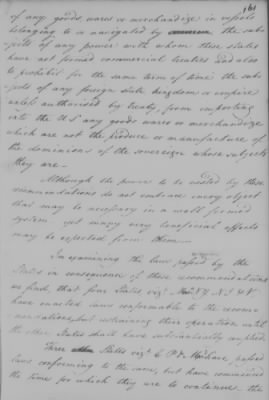 161
of any goods, wares or merchandize in vessels
belonging to or navigated by the sub-
jects of any power with whom these states
have not formed commercial treaties and also
to prohibit for the same term of time the sub-
jects of any foreign state kingdom or empire
unless authorised by treaty, from importing
into the U.S. any goods wares or merchandize
which are not the produce or manufacture of
the dominions of the sovereign whose subjects
they are —
Although the powers to be vested by these
recommendations do not embrace every object
that may be necessary in a well formed
system yet many very beneficial effects
may be expected from them —
In examining the laws passed by the
States in consequence of these recommendations
we find, that four States viz.
have enacted laws conformable to the recom-
mendations, but restraining their operation until
the other States shall have substantially complied
Three States viz. passed
laws conforming to the same, but have
the time for which they are to continue the